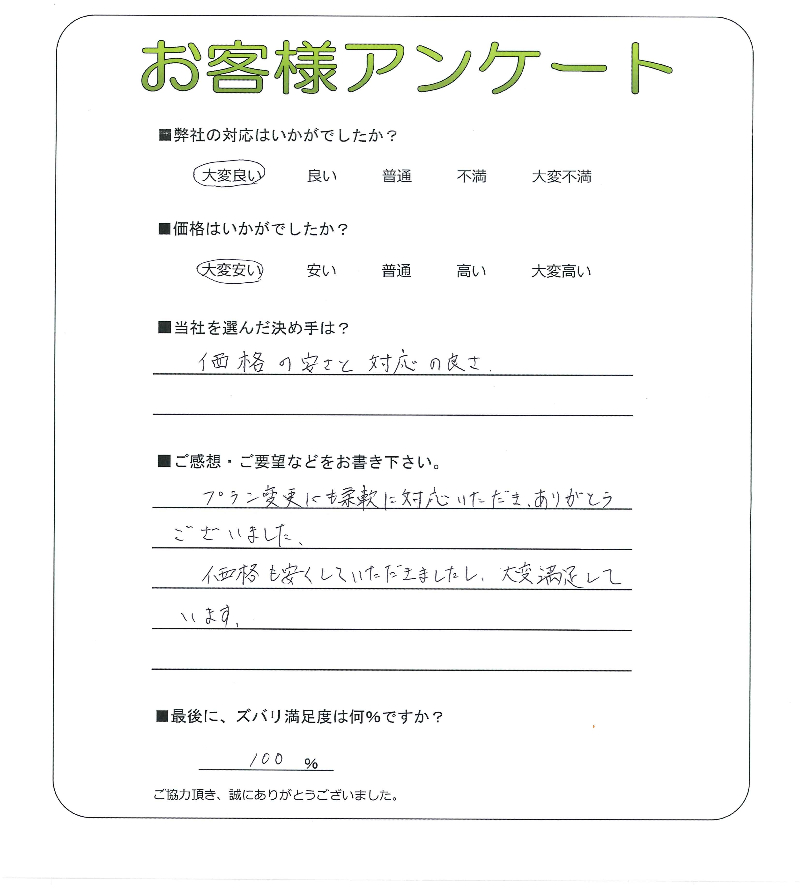 お客様アンケート
■弊社の対応はいかがでしたか？
大変良い 良い 普通 不満 大変不満
■価格はいかがでしたか？
大変安い 安い 普通 高い 大変高い
■当社を選んだ決め手は？
価格の安さと対応の良さ.
■ご感想・ご要望などをお書き下さい。
プラン変更にも柔軟に対応いただき、ありがとう
ございました、
価格も安くしていただきましたし、大変満足して
います。
■最後に、ズバリ満足度は何%ですか？
100 %
ご協力頂き、誠にありがとうございました。